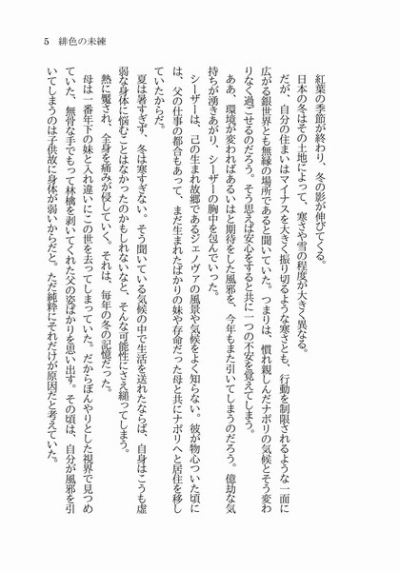 5 緋色の未練
紅葉の季節が終わり、冬の影が伸びてくる。
日本の冬はその土地によって、寒さや雪の程度が大きく異なる。
だが、自分の住まいはマイナスを大きく振り切るような寒さとも、行動を制限されるような一面に
広がる銀世界とも無縁の場所であると聞いていた。つまりは、慣れ親しんだナポリの気候とそう変わ
りなく過ごせるのだろう。そう思えば安心をすると共に一つの不安を覚えてしまう。
ああ、環境が変わればあるいはと期待をした風邪を、今年もまた引いてしまうのだろう。億劫な気
持ちが湧きあがり、シーザーの胸中を包んでいった。
シーザーは、己の生まれ故郷であるジェノヴァの風景や気候をよく知らない。彼が物心ついた頃に
は、父の仕事の都合もあって、まだ生まれたばかりの妹や存命だった母と共にナポリへと居住を移し
ていたからだ。
夏は暑すぎず、冬は寒すぎない。そう聞いている気候の中で生活を送れたならば、自身はこうも虚
弱な身体に悩むことはなかったのかもしれないなと、そんな可能性にさえ縋ってしまう。
熱に魘され、全身を痛みが侵していく。それは、毎年の冬の記憶だった。
母は一番年下の妹と入れ違いにこの世を去ってしまっていた。だからぼんやりとした視界で見つめ
ていた、無骨な手でもって林檎を剥いてくれた父の姿ばかりを思い出す。その頃は、自分が風邪を引
いてしまうのは子供故に身体が弱いからだと、ただ純粋にそれだけが原因だと考えていた。